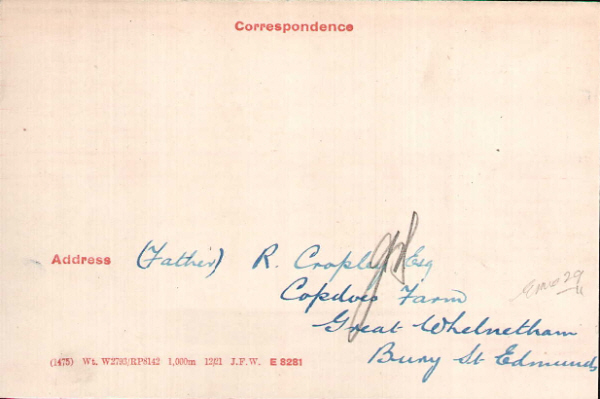 Correspondence
Address (Father) R. Cropley Esq
Copdoes Farm
Great Whelnetham
Bury St Edmunds
(1475) Wt. W2793/RP8142 1,000m 12/21 J.F.W. E 8281